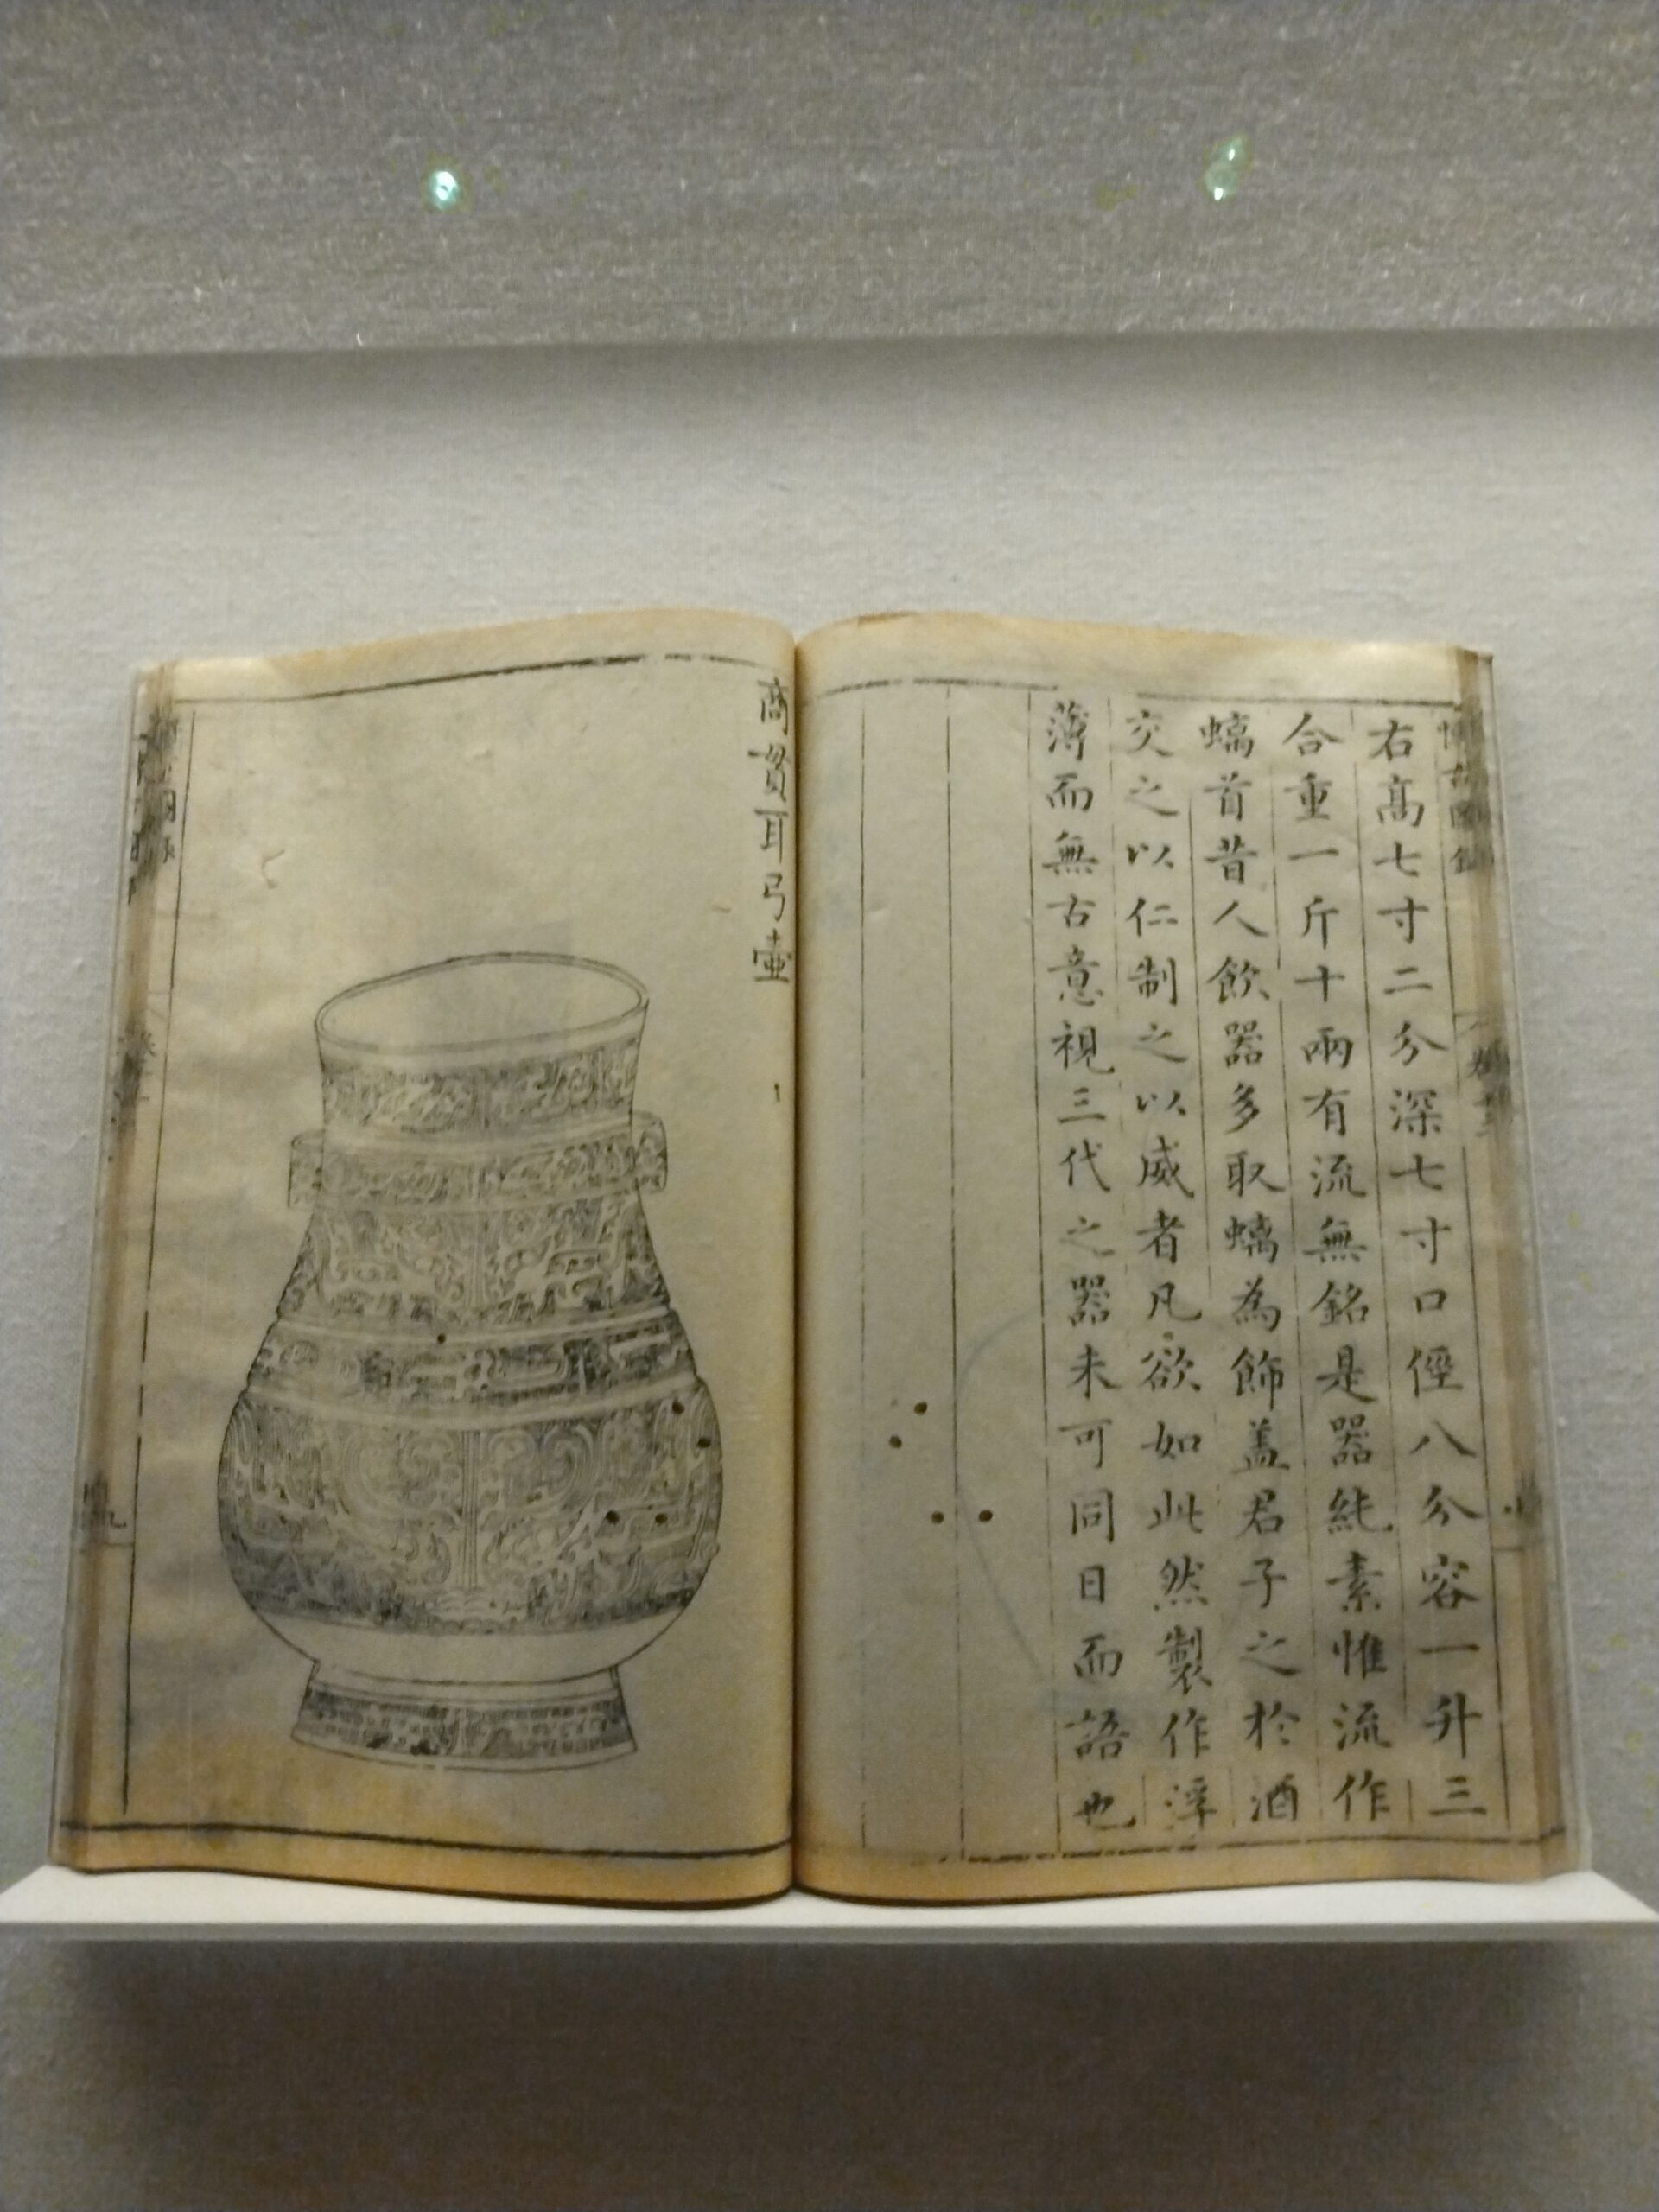 博古圖錄
右高七寸二分深七寸口徑八分容一升三
合重一斤十兩有流無銘是器純素惟流作
螭首昔人飲器多取螭為飾盖君子之於酒
交之以仁制之以威者凡欲如此然製作浮
薄而無古意視三代之器未可同日而語也
商貫耳弓壷